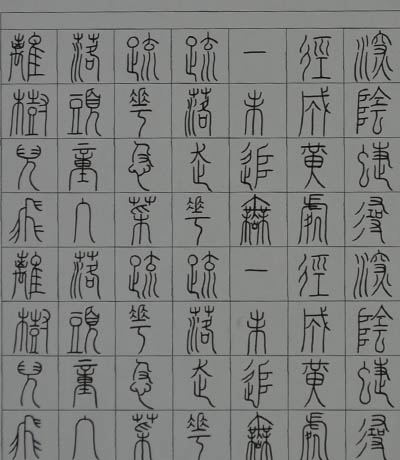 籬落疏疏一徑深
樹頭花落未成陰
兒童急走追黃蝶
飛入菜花無處尋
籬落疏疏一徑深
樹頭花落未成陰
兒童急走追黃蝶
飛入菜花無處尋